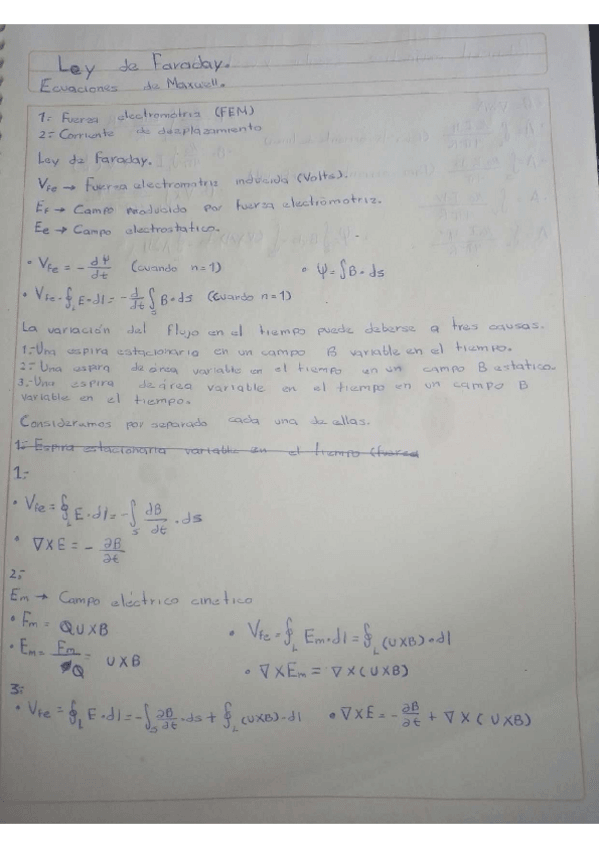 Ley de Faraday.
Ecuaciones de Maxwell.
1= Fuerza electromotriz (FEM)
2= Corriente de desplazamiento
Ley de Faraday.
Vfe → Fuerza electromotriz inducida (Volts).
Ef → Campo producido por fuerza electromotriz.
Ee → Campo electrostatico.
• Vfe = - dΨ/dt (cuando n=1) • Ψ = ∫B·ds
• Vfe = ∮L E·dl = - d/dt ∫s B·ds (cuando n=1)
La variación del flujo en el tiempo puede deberse a tres causas.
1.-Una espira estacionaria en un campo B variable en el tiempo.
2.-Una espira de área variable en el tiempo en un campo B estatico.
3.-Una espira de área variable en el tiempo en un campo B
variable en el tiempo.
Consideramos por separado cada una de ellas.
1.- Espira estacionaria variable en el tiempo (fuerza
1.-
• Vfe = ∮L E·dl = - ∫s ∂B/dt · ds
• ∇XE = - ∂B/∂t
2.-
Em → Campo eléctrico cinetico
• Fm = QUXB • Vfe = ∮L Em·dl = ∮L (UXB)·dl
• Em = Fm/Q = UXB • ∇XEm = ∇X(UXB)
3.-
• Vfe = ∮L E·dl = - ∫s ∂B/∂t · ds + ∮L (UXB)·dl • ∇XE = - ∂B/∂t + ∇X(UXB)